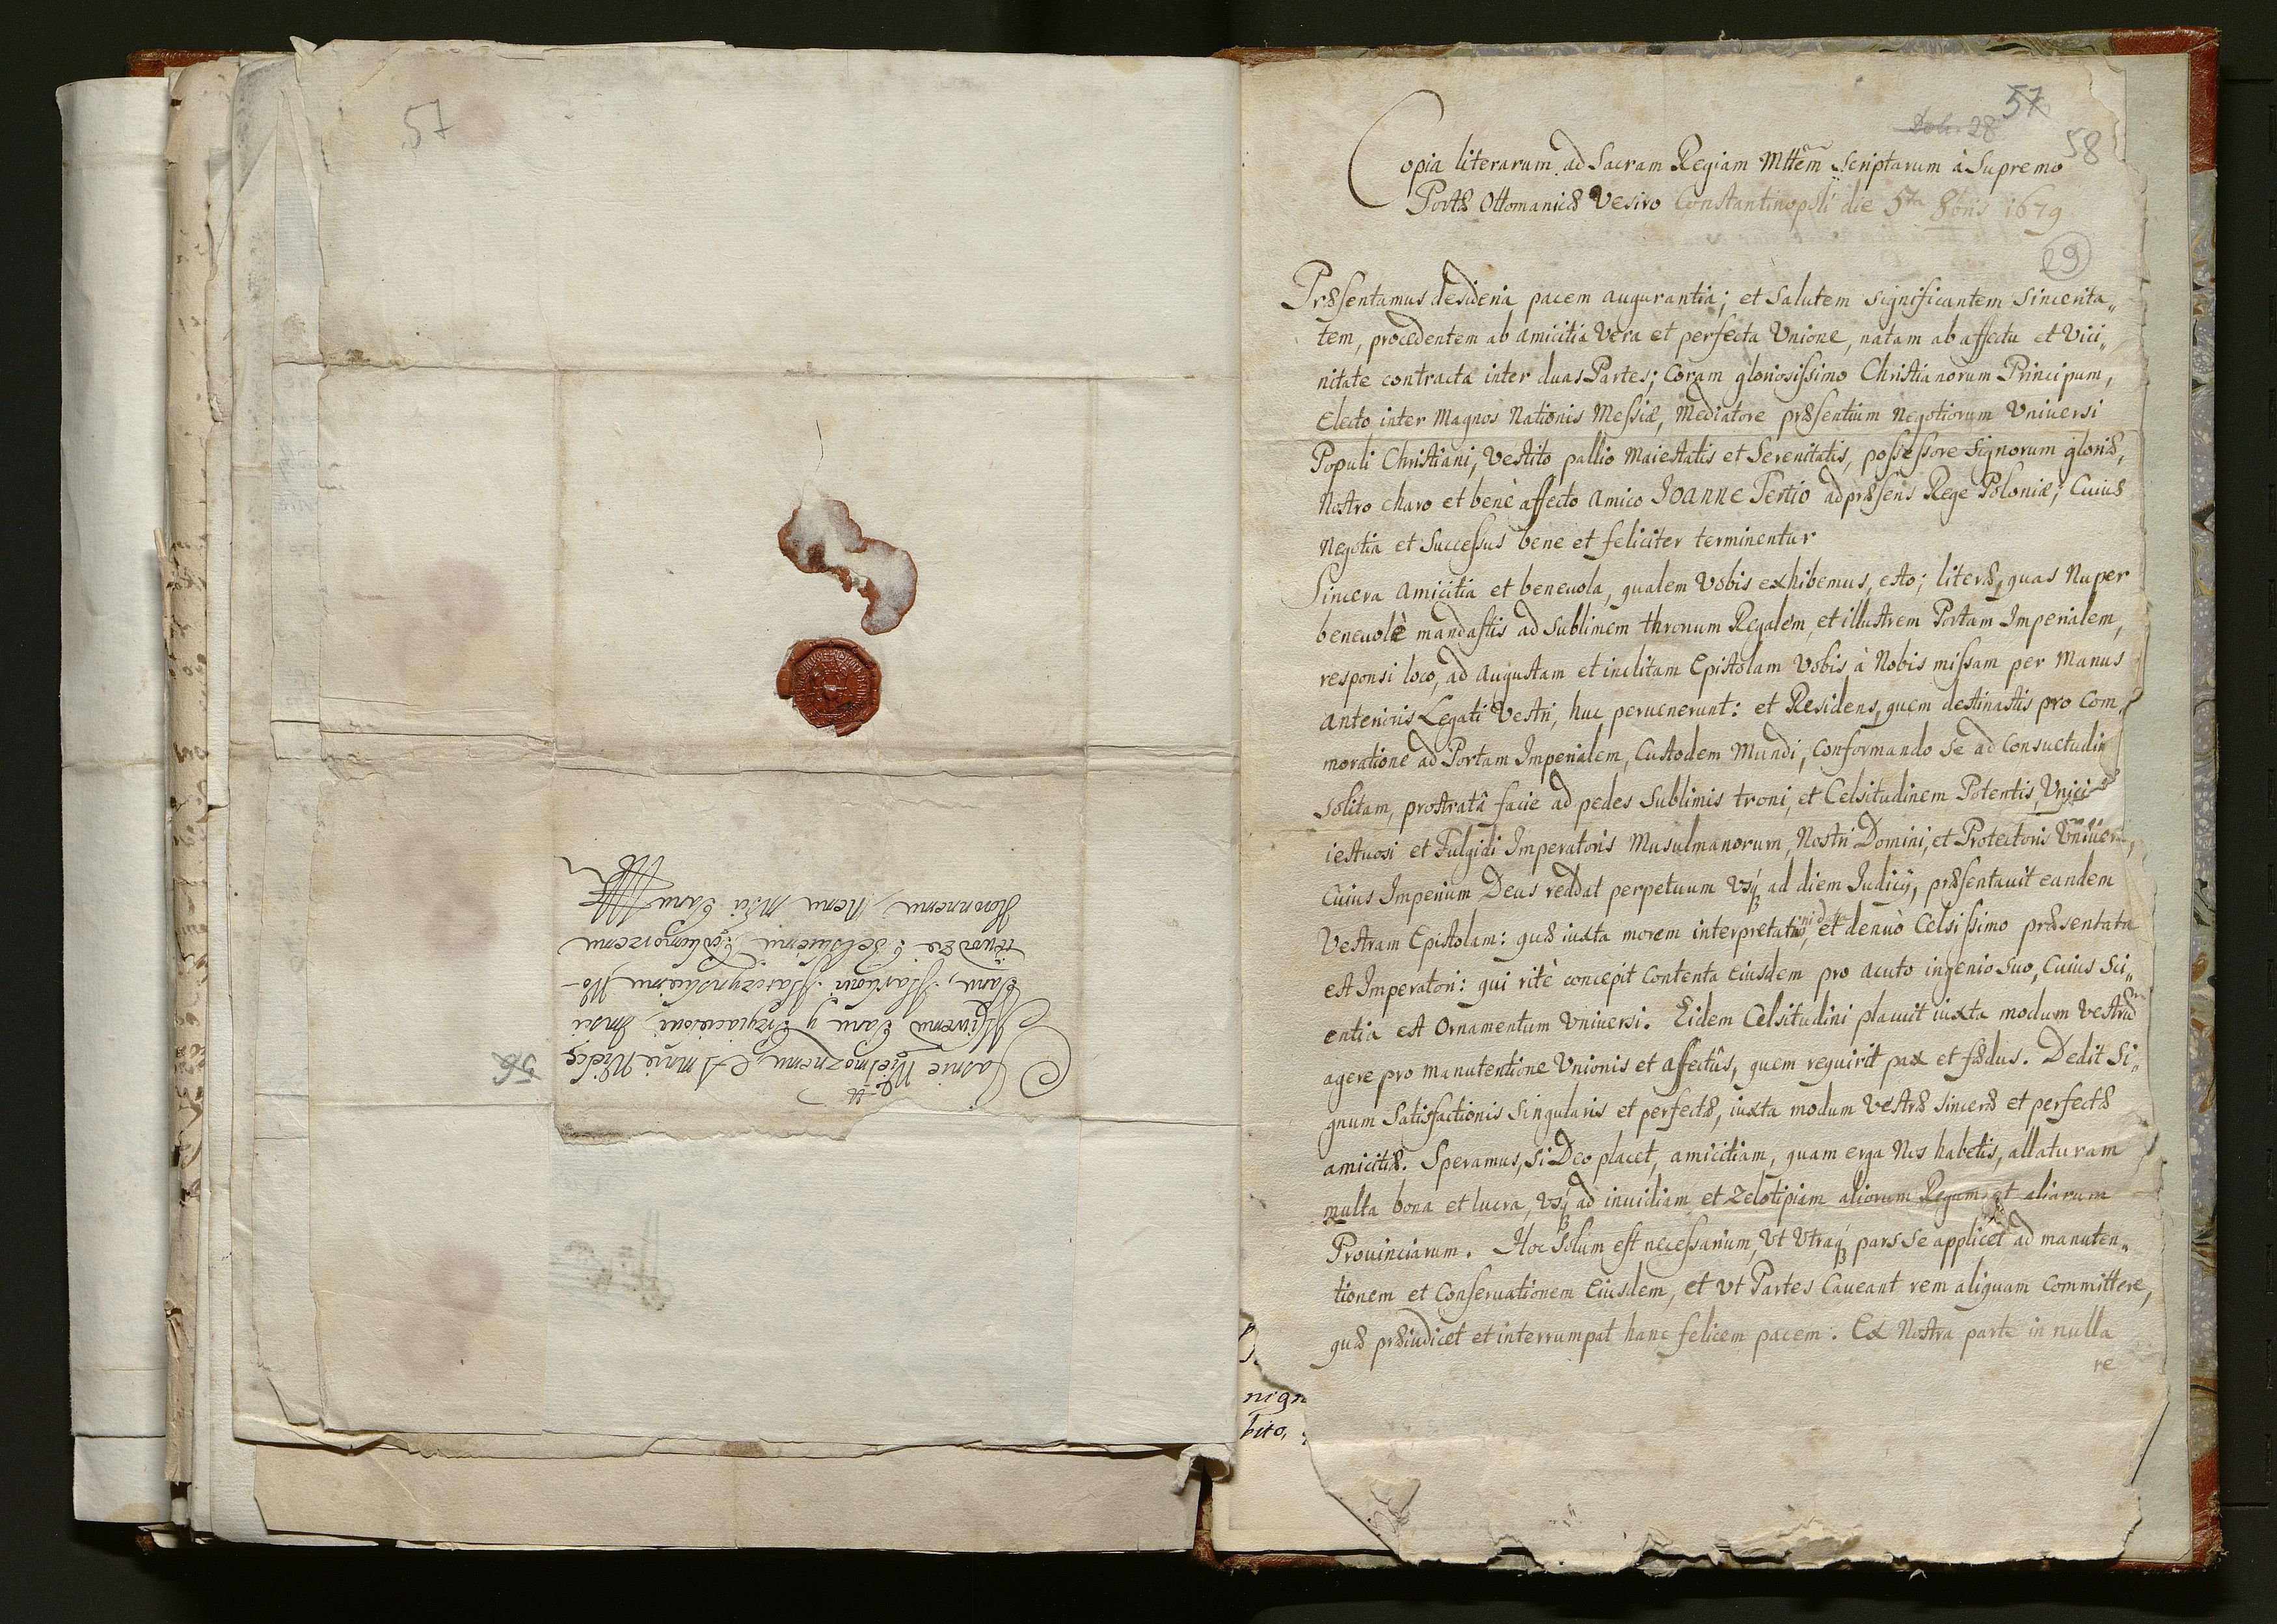 57
Jasnie Wielmoznemu, A mnie Wielce
Miwemu Panu y Przyiacielowi, Jmsci
Panu,
Panu Msci
56
57
28
58
Copia literarum ad Sacram Regiam Mttem Scriptarum à Supremo
Portæ Ottomanicæ Vesiro Constantinopoli die 5ta 8bris 1679
29
Præsentamus desideria pacem augurantia; et Salutem significantem Sincerita„
tem, procedentem ab amicitia vera et perfecta Unione, natam ab affectu et Vici„
nitate contracta inter duas Partes; Coram gloriosissimo Christianorum Principum,
Electo inter Magnos Nationis Messiæ, Mediatore præsentium Negotiorum Universi
Populi Christiani, Vestito pallio Maiestatis et Serenitatis, possessore Signorum gloriæ,
Nostro charo et benè affecto Amico Joanne Tertio ad præsens Rege Poloniæ; Cuius
Negotia et Successus bene et feliciter terminentur
Sincera Amicitia et beneuola, qualem Vobis exhibemus, esto; literæ, quas Nuper
beneuolè mandastis ad Sublimem thronum Regalem, et illustrem Portam Imperialem,
responsi loco, ad Augustam et inclitam Epistolam Vobis à Nobis missam per Manus
Anterioris Legati Vestri, huc peruenerunt: et Residens, quem destinastis pro Com„
moratione ad Portam Imperialem, Custodem Mundi, Conformando se ad Consuetudin
Solitam, prostratâ facie ad pedes Sublimis troni, et Celsitudinem Potentis, Unici
iestuosi et Fulgidi Imperatoris Musulmanorum, Nostri Domini, et Protectoris Univer
Cuius Imperium Deus reddat perpetuum usq ad diem Judicij, præsentauit eandem
Vestram Epistolam: quæ iuxta morem interpretatu, et denuò Celsissimo præsentata
est Imperatori: qui ritè concepit Contenta Eiusdem pro acuto ingenio Suo, Cuius Sci„
entia est Ornamentum Vniuersi. Eidem Celsitudini placuit iuxta modum Vestrum
agere pro Manutentione Vnionis et affectûs, quem requirit pax et fædus. Dedit Si„
gnum Satisfactionis Singularis et perfectæ, iuxta modum Vestræ sinceræ et perfectæ
amicitiæ. Speramus, Si Deo placet, amicitiam, quam erga Nos habetis, allaturam
multa bona et lucra, Vsq ad inuidiam et Zelotipiam aliorum Regum, et aliarum
Prouinciarum. Hoc Solum est necessarium, Vt Vtraq pars se applicet ad manuten„
tionem et Conseruationem Eiusdem, et Vt Partes Caueant rem aliquam Committere,
quæ præiudicet et interrumpat hanc felicem pacem. Ex Nostra parte in nulla
re
nign
bito,